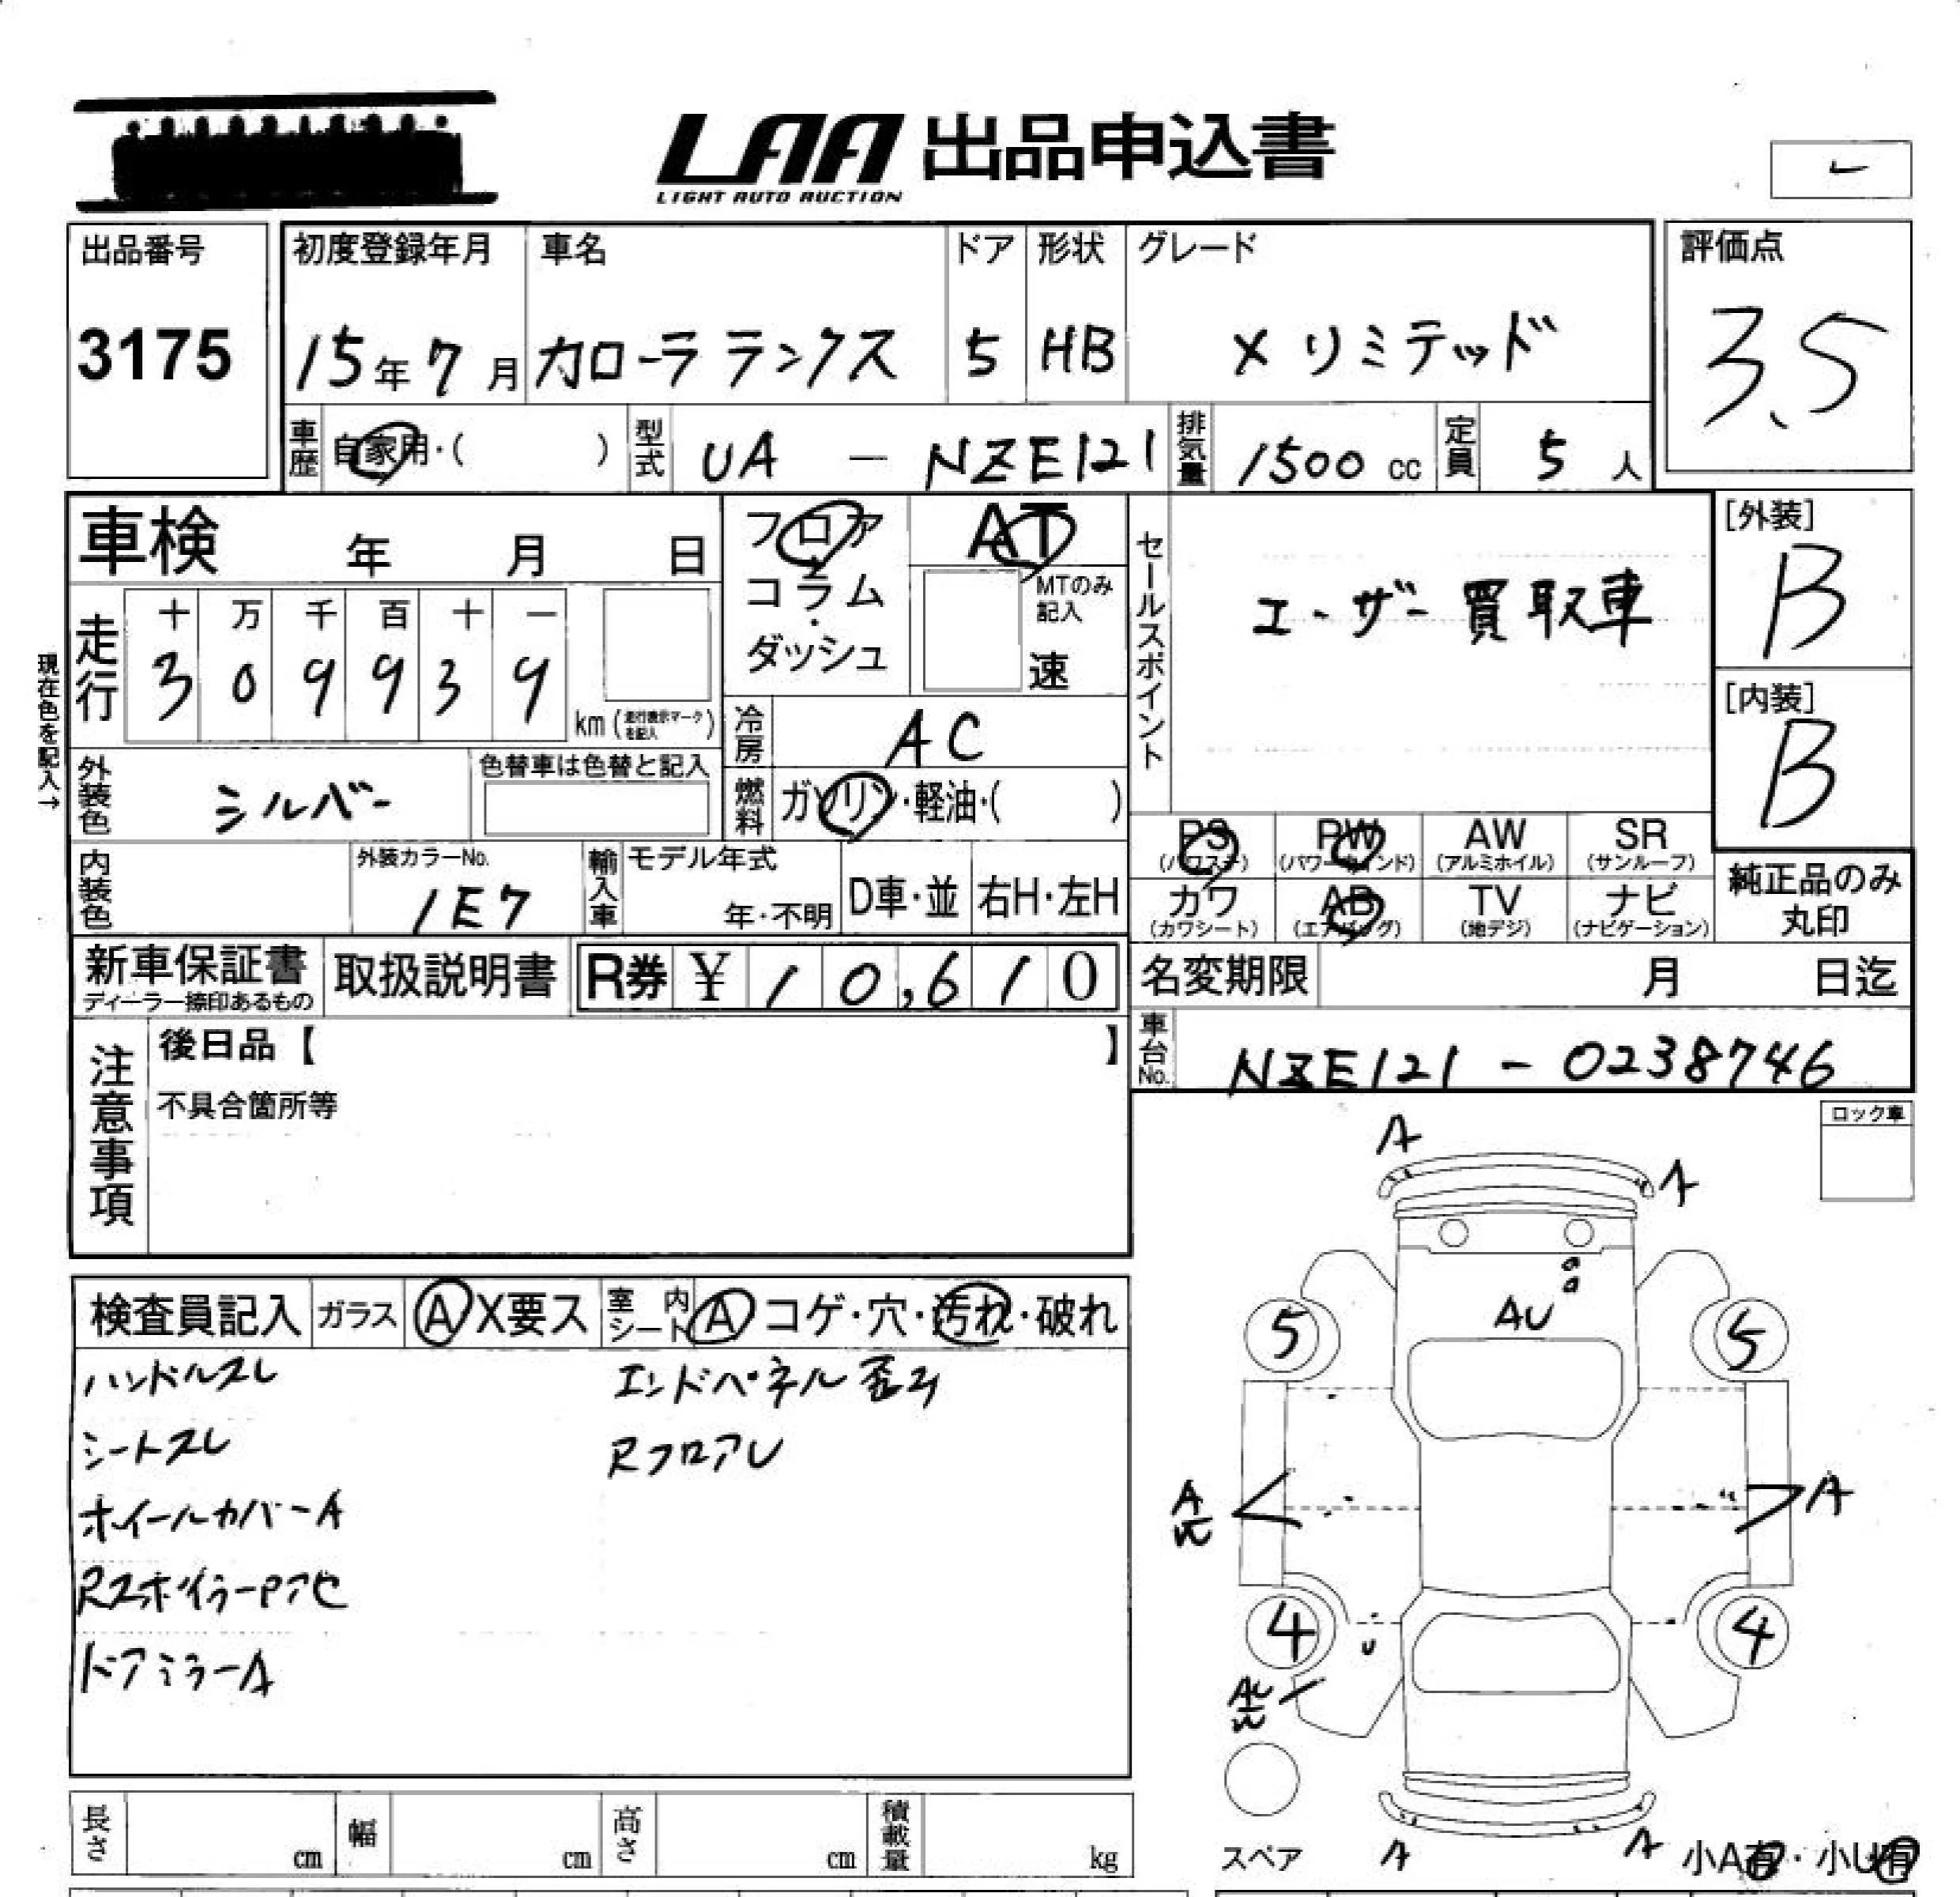 LAA 出品申込書
LIGHT AUTO AUCTION
出品番号
3175
初度登録年月
15年7月
車名
カローラ ランクス
ドア
5
形状
HB
グレード
X リミテッド
評価点
3.5
車歴
自家用・( )
型式
UA — NZE121
排気量
1500 cc
定員
5 人
車検 年 月 日
フロア・コラム・ダッシュ
AT
MTのみ記入
速
セールスポイント
ユーザー買取車
[外装]
B
[内装]
B
現在色を記入→
走行
十 万 千 百 十 一
3 0 9 9 3 9
km(走行表示マークを記入)
冷房
AC
外装色
シルバー
色替車は色替と記入
燃料
ガソリン・軽油・( )
PS (パワステ)
PW (パワーウインド)
AW (アルミホイル)
SR (サンルーフ)
カワ (カワシート)
AB (エアバッグ)
TV (地デジ)
ナビ (ナビゲーション)
純正品のみ丸印
内装色
外装カラーNo.
1E7
輸入車
モデル年式
年・不明
D車・並
右H・左H
新車保証書
ディーラー捺印あるもの
取扱説明書
R券 ¥ 10,610
名変期限 月 日迄
車台No.
NZE121 - 0238746
注意事項
後日品【 】
不具合箇所等
ロック車
検査員記入
ガラス
A X要ス
室内シート
A コゲ・穴・汚れ・破れ
ハンドルスレ
シートスレ
ホイールカバーA
RスポイラーPアセ
ドアミラーA
エンドパネル歪み
RフロアU
A
A
AU
5
5
A
W
A
4
4
U
AU
W
スペア
A
A
小A有・小U有
長さ cm
幅 cm
高さ cm
積載量 kg